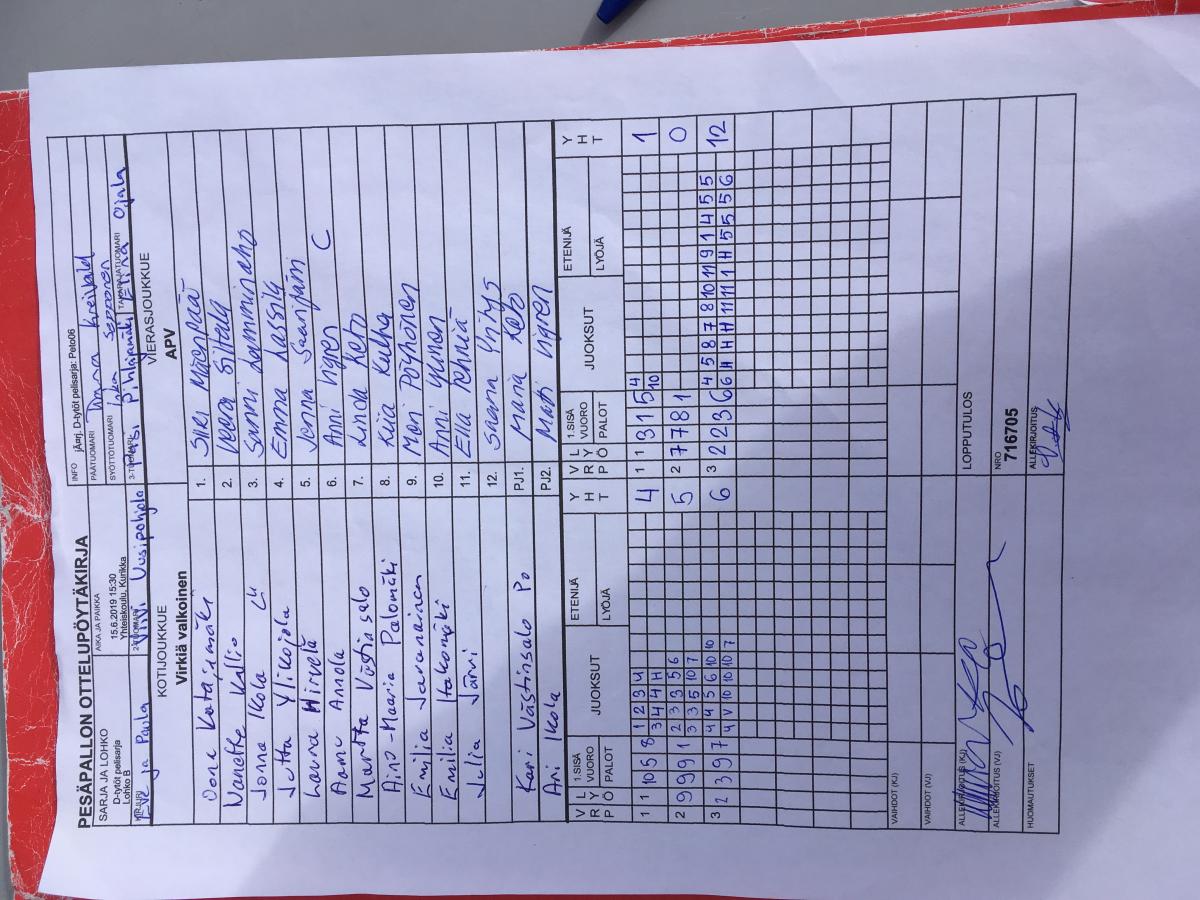 PESÄPALLON OTTELUPÖYTÄKIRJA
SARJA JA LOHKO
D-tytöt pelisarja
Lohko B
AIKA JA PAIKKA
15.6.2019 15:30
Yhteiskoulu, Kurikka
INFO jÄrrj. D-tytöt pelisarja: Peto06
PÄÄTUOMARI
SYÖTTÖTUOMARI Sepponen
KIRJURI ja Paula
2-TUOMARI Viivi Uusipohjola
3-TUOMARI Pasi Pihlajamäki
TAKARAJATUOMARI Elina Ojala
KOTIJOUKKUE
Virkiä valkoinen
VIERASJOUKKUE
APV
Oona Katajamäki
Nanette Kallio
Jonna Ikola C
Jutta Ylikojola
Laura Hirvelä
Aamu Annola
Martta Västinsalo
Aino-Maaria Palomäki
Emilia Jaranainen
Emilia Itakomäki
Julia Järvi
Kari Västinsalo Po
Ari Ikola
1. Siiri Mäenpää
2. Veera Siltala
3. Sunni Lamminaho
4. Emma Lassila
5. Jenna Saarijärvi
6. Anni Vigren C
7. Linda Keto
8. Kiia Kulha
9. Meri Pöyhönen
10. Anni Yrjänen
11. Ella Pehniä
12. Saana Yntys
PJ1. Marja Keto
PJ2. Matti Vigren
VRP LYÖ 1.SISÄ VUORO PALOT JUOKSUT ETENIJÄ LYÖJÄ YHT
1 1 10 5 8 1 2 3 4 4
3 4 4 H
2 9 9 9 1 2 3 3 5 6 5
3 3 5 10 7
3 2 3 9 7 4 4 5 6 10 10 6
4 V 10 10 10 7
VRP LYÖ 1.SISÄ VUORO PALOT JUOKSUT ETENIJÄ LYÖJÄ YHT
1 1 3 1 5 4 1
10
2 7 7 8 1 0
3 2 2 3 6 4 5 8 7 8 10 11 9 1 4 5 5 12
6 H H H H 11 11 1 H 5 5 6
VAIHDOT (KJ)
VAIHDOT (VJ)
ALLEKIRJOITUS (KJ)
LOPPUTULOS
ALLEKIRJOITUS (VJ)
NRO
716705
HUOMAUTUKSET
ALLEKIRJOITUS